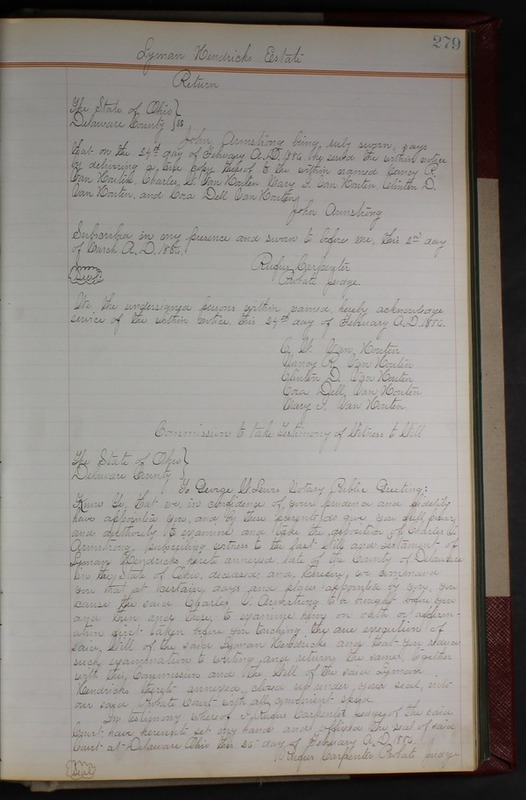 279
Lyman Hendricks Estate
Return
The State of Ohio }
Delaware County } ss
John Armstrong being duly sworn, says
that on the 24th day of February A.D. 1886, he served the within notice
by delivering a true copy thereof to the within named Nancy R.
Van Houten, Charles W. Van Houten Mary I. Van Houten Clinton D.
Van Houten, and Cora Dell Van Houten,
John Armstrong
Subscribed in my presence and sworn to before me, this 2nd day
of March A.D. 1886.
Rufus Carpenter
Seal Probate Judge.
We, the undersigned persons within named, hereby acknowledge
service of the within notice, this 24th day of February A.D. 1886.
C. W. Van Houten
Nancy R. Van Houten
Clinton D. Van Houten
Cora Dell Van Houten
Mary I. Van Houten
Commission to take Testimony of Witness to Will
The State of Ohio }
Delaware County }
To George W Lewis Notary Public Greeting:
Know Ye, that we, in confidence of your prudence and fidelity
have appointed you, and by these presents do give you full power
and authority to examine and take the deposition of Charles C.
Armstrong subscribing witness to the last Will and Testament of
Lyman Hendricks hereto annexed, late of the County of Delaware
in the State of Ohio, deceased, and, hereby, we command
you that at certain days and place appointed by you, you
cause the said Charles C. Armstrong to be brought before you
and then and there, to examine him on oath or affirm-
ation first taken before you touching the due execution of
said Will of the said Lyman Hendricks and that you reduce
such examination to writing and return the same, together
with this Commission and the Will of the said Lyman
Hendricks thereto annexed, closed up under your seal, into
our said Probate Court with all convenient speed.
In testimony Whereof I Rufus Carpenter Judge of the said
Court have hereunto set my hand and affixed the seal of said
Court at Delaware Ohio this 25" day of February A.D. 1886.
Seal Rufus Carpenter Probate Judge